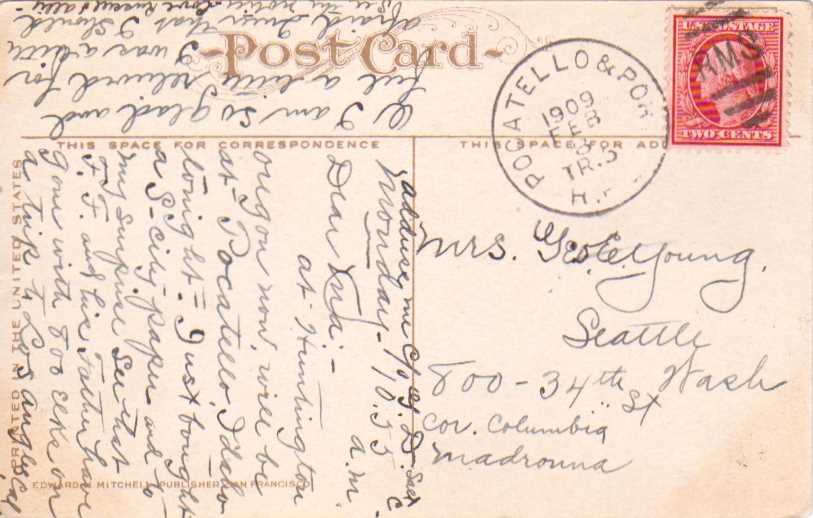 Post Card
U.S. POSTAGE
TWO CENTS
POCATELLO & POR
1909
FEB
8
TR.3
R.M.S
THIS SPACE FOR CORRESPONDENCE
THIS SPACE FOR ADD
PRINTED IN THE UNITED STATES
EDWARD H. MITCHELL PUBLISHER SAN FRANCISCO
Mrs. Geo. E. Young.
Seattle
800-34th St Wash
Cor. Columbia
Madronna
address me c/o G. D. Salt
Monday- 10.55 a.m.
Dear Ina:-
at Huntington
oregon now, will be
at- Pocatello Idaho
tonight- Just bought
a S- city paper and to
my surprise See that
F.F. and his Father have
gone with 800 elks on
a trip to Los Angles Cal,
I am so glad and
feel a little relieved for
I was a little
afraid that I Should